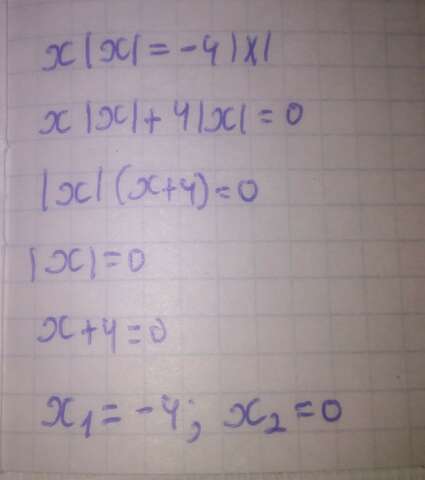 x|x| = -4|x|
x|x| + 4|x| = 0
|x|(x+4) = 0
|x| = 0
x + 4 = 0
x₁ = -4; x₂ = 0